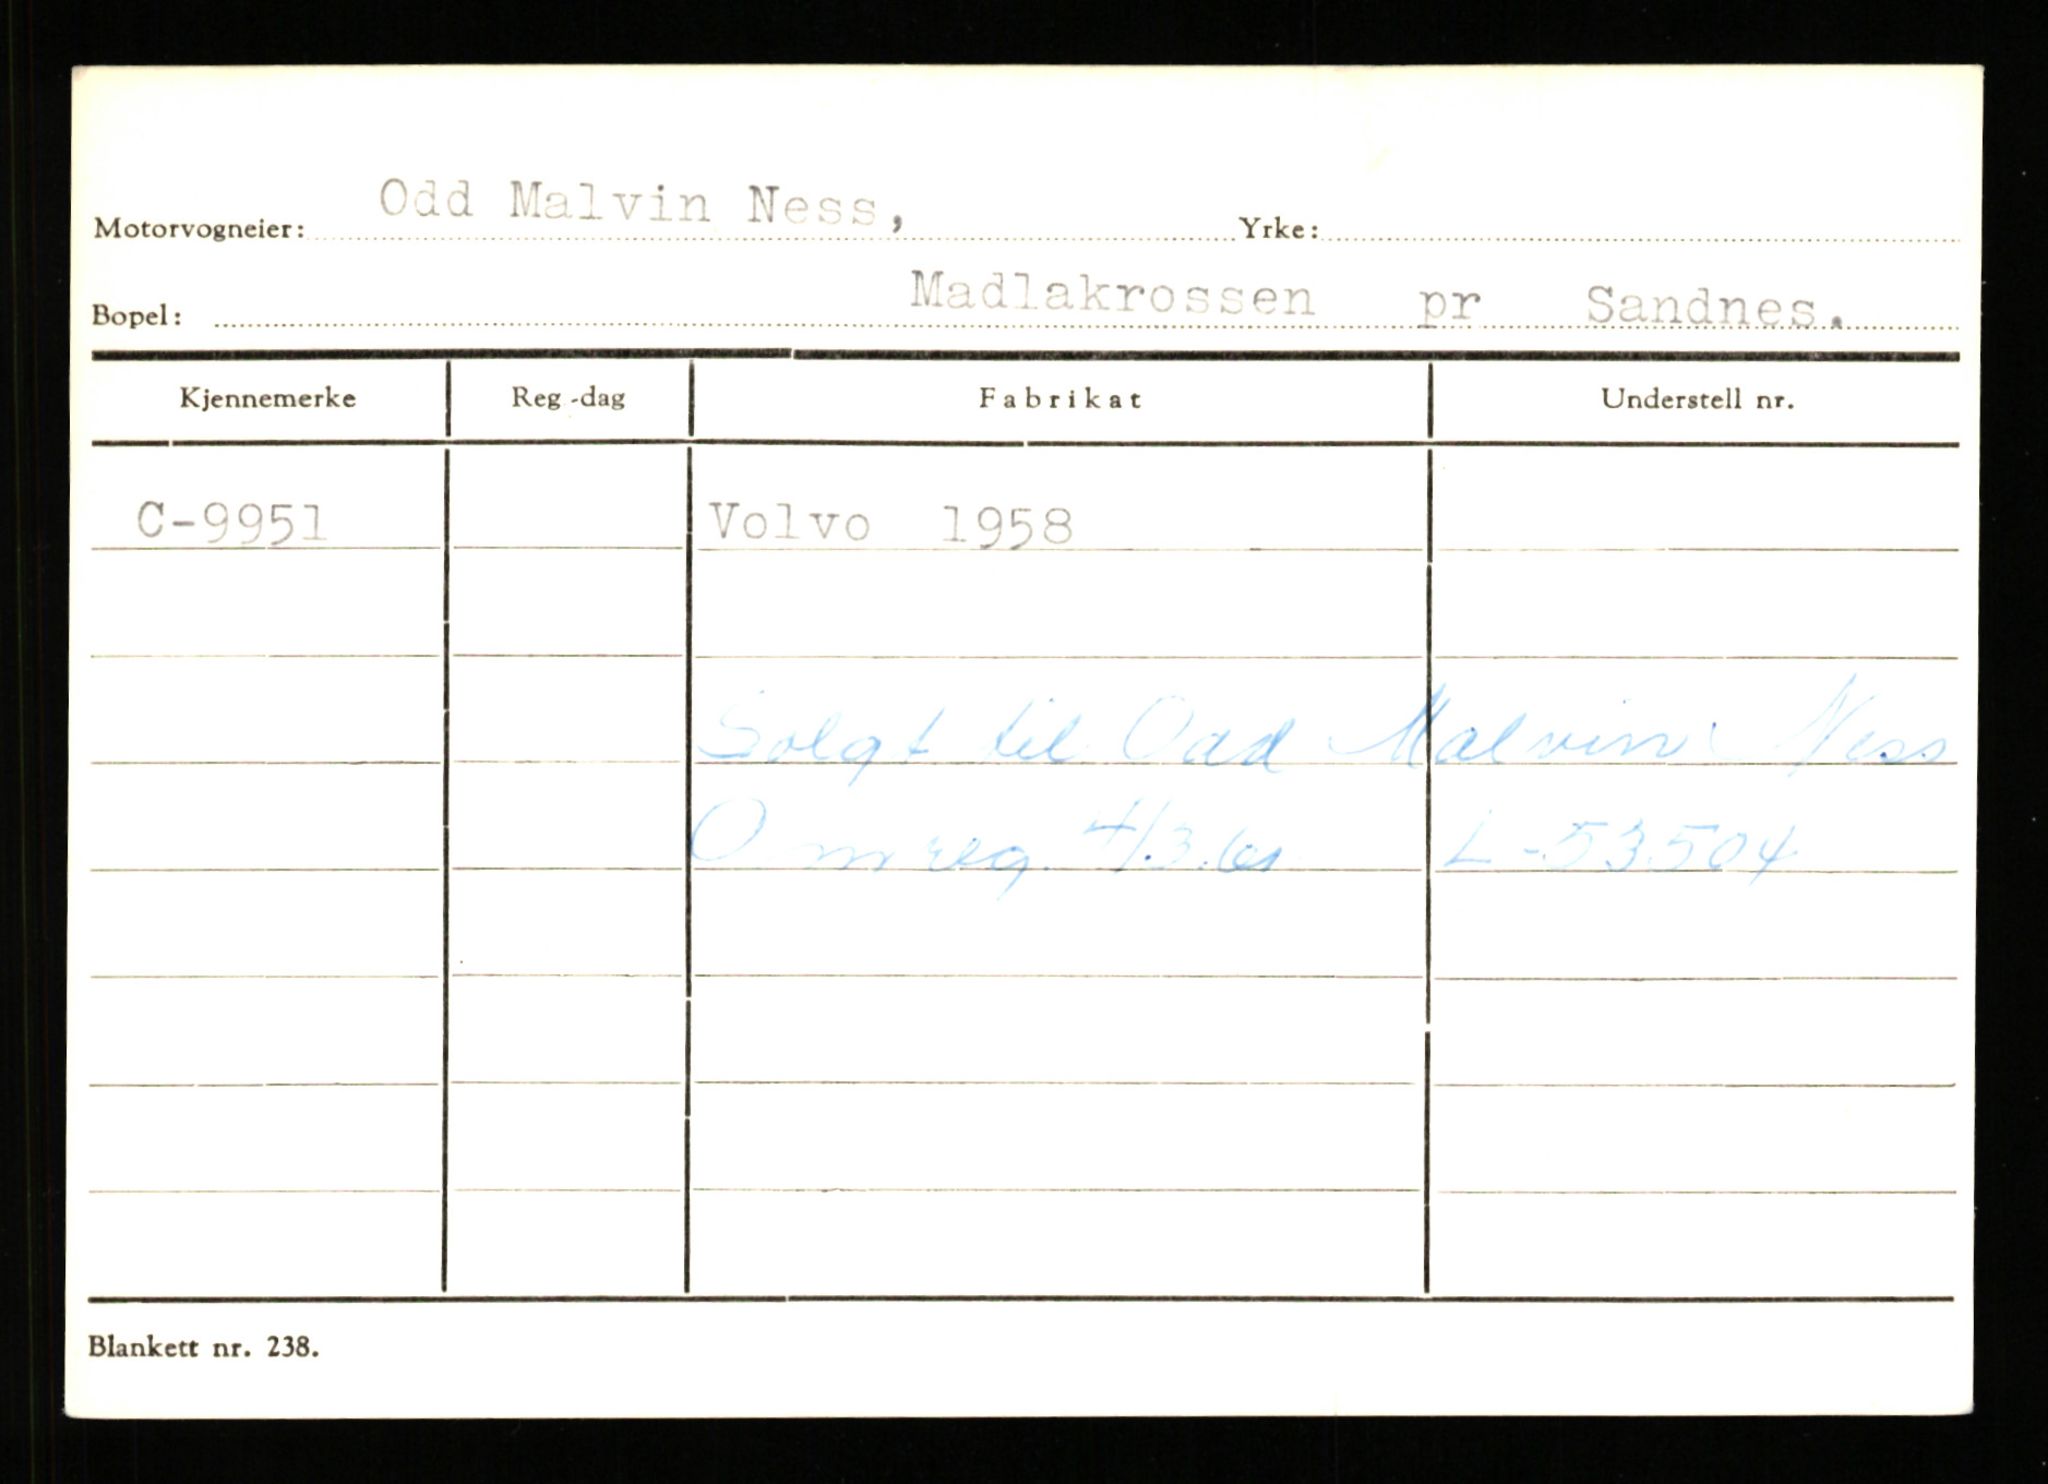 Motorvogneier: Odd Malvin Ness, Yrke:
Bopel: Madlakrossen pr Sandnes.
Kjennemerke Reg-dag Fabrikat Understell nr.
C-9951 Volvo 1958
Solgt til Odd Malvin Ness
Omreg. 4/3.61 L-53504
Blankett nr. 238.